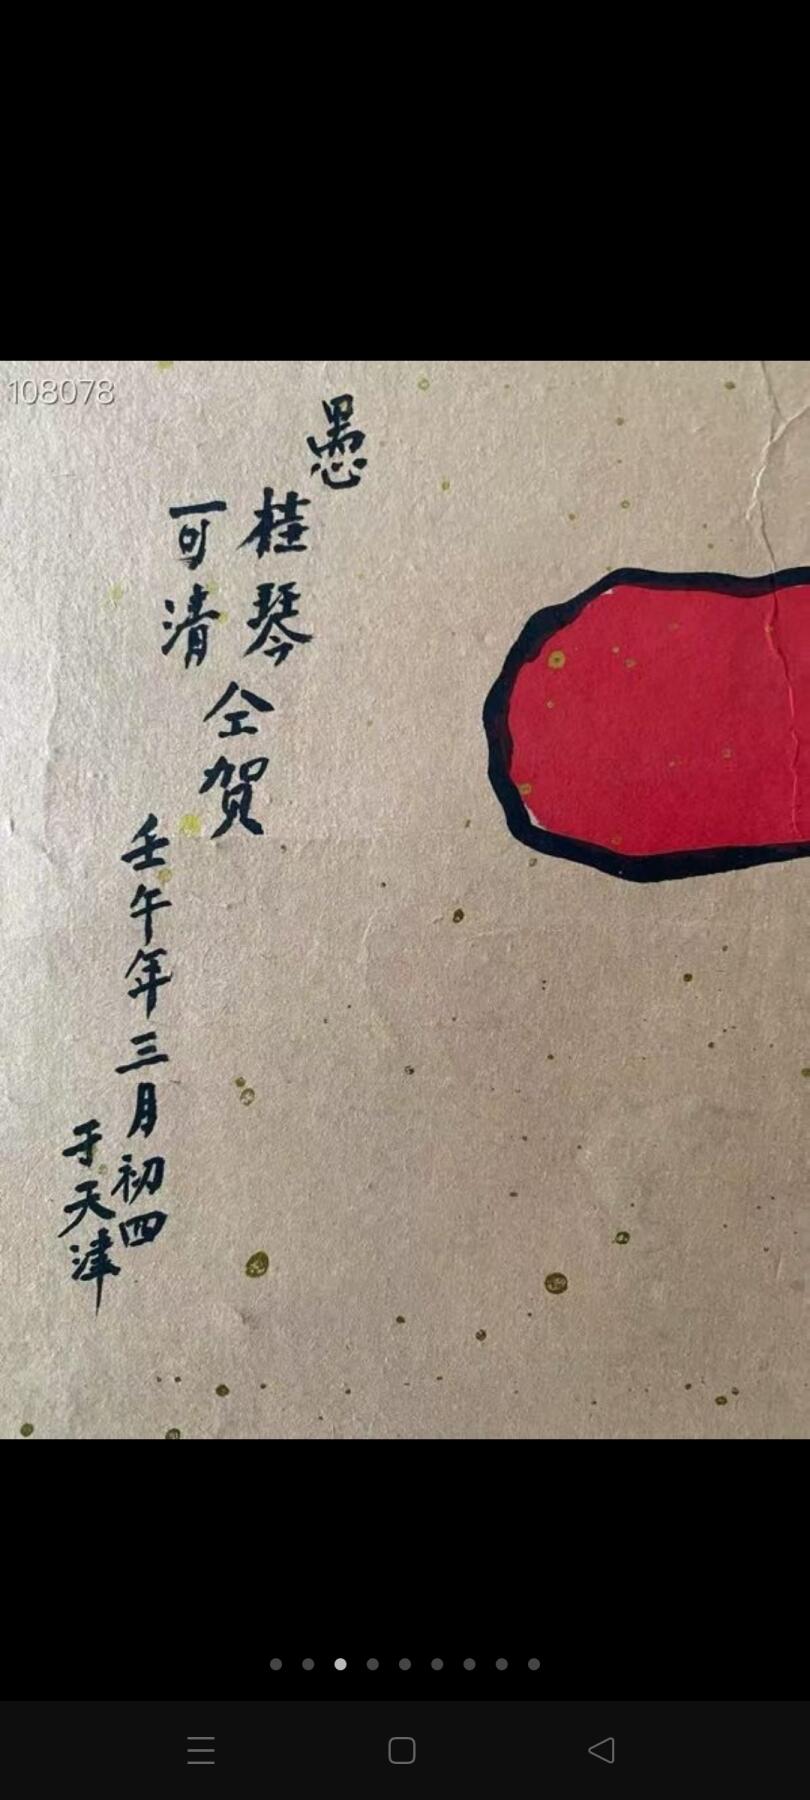 108078
愚
桂琴
可清
仝贺
壬午年三月初四
于天津